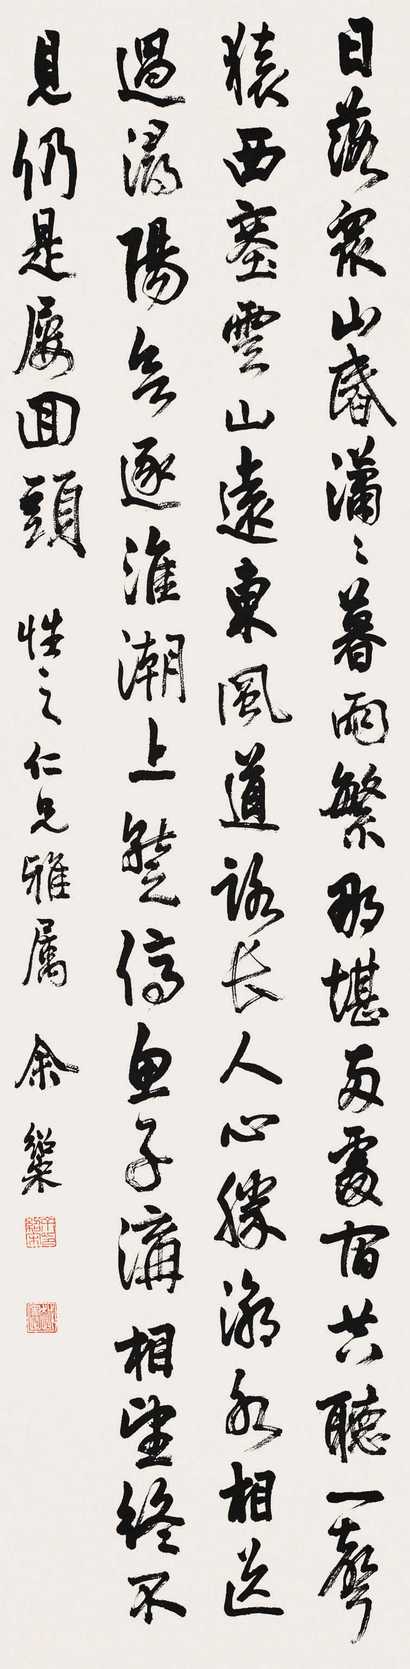 日落眾山昏瀟々暮雨繁那堪兩處宿共聽一聲
猿西塞雲山遠東風道路長人心勝潮水相送
過潯陽逐淮潮上停魚子溝相望終不
見仍是屢回頭 性之仁兄雅屬 余紹宋